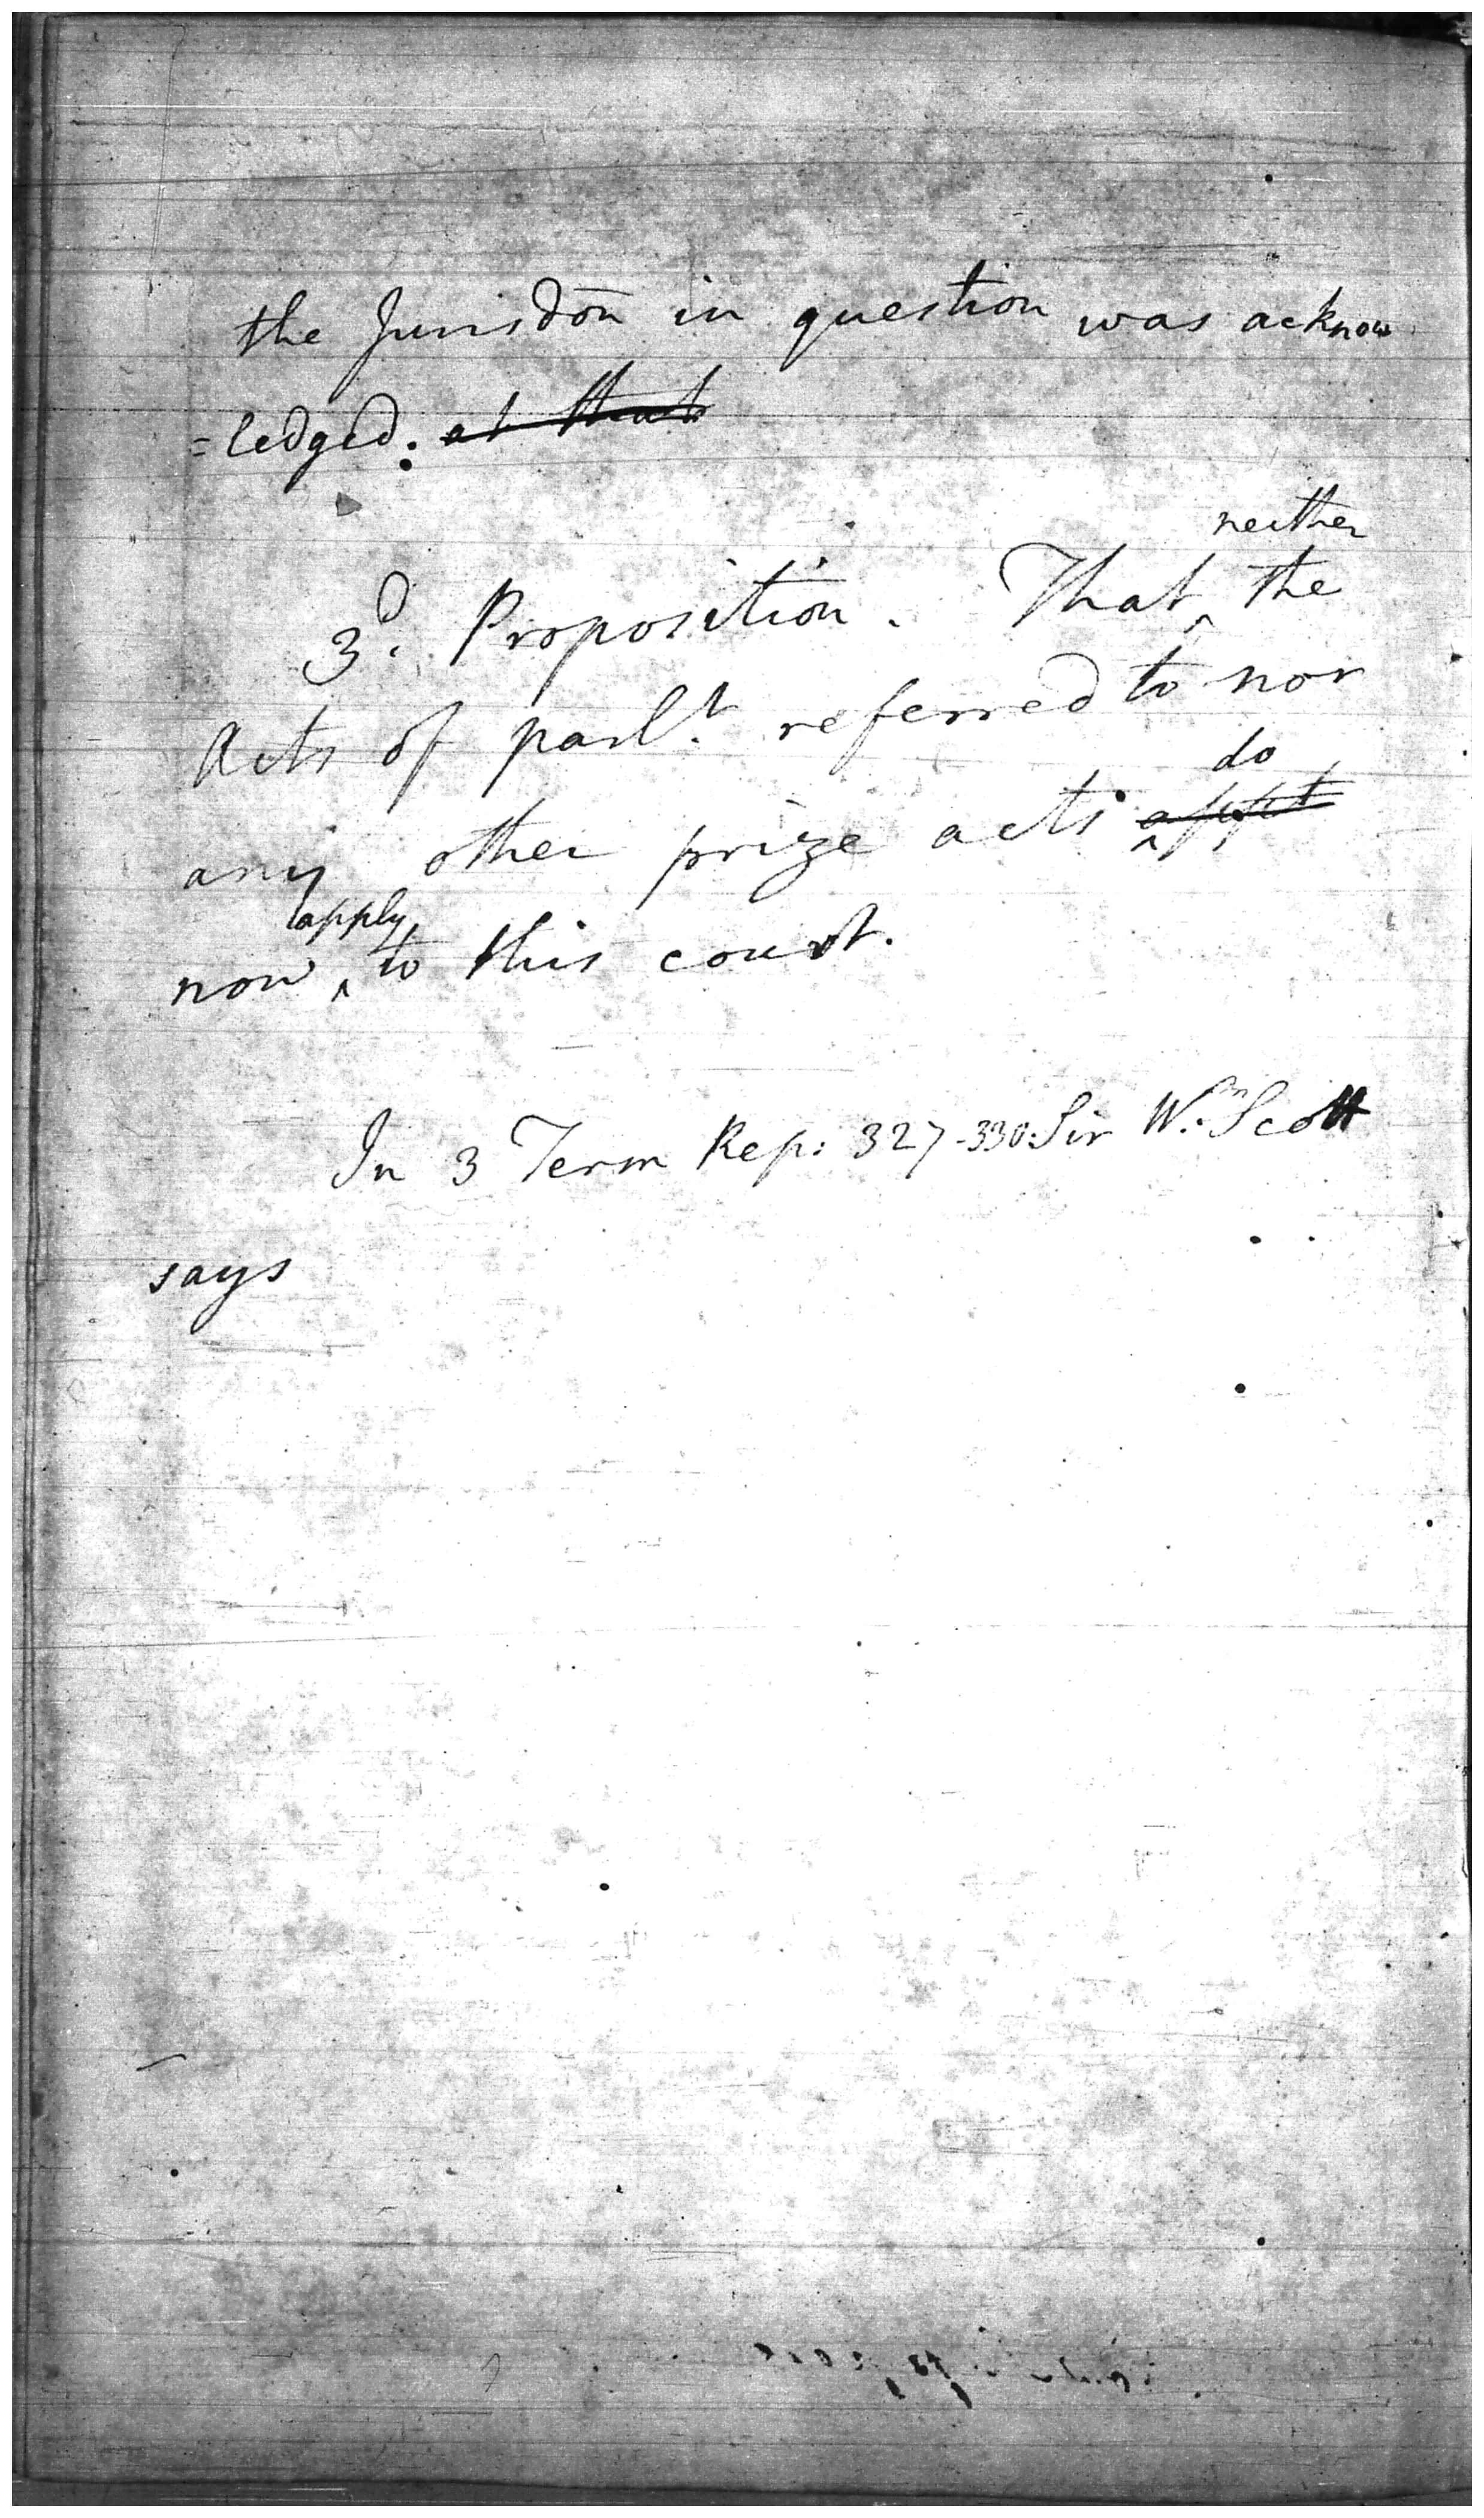 the Jurisdōn in question was acknow
=ledged. at that
neither
3d. Proposition. That ‸ the
Acts of parlt. referred to nor
do
any other prize acts ‸
apply
now ‸ to this court.
In 3 Term Rep: 327-330. Sir Wm. Scott
says